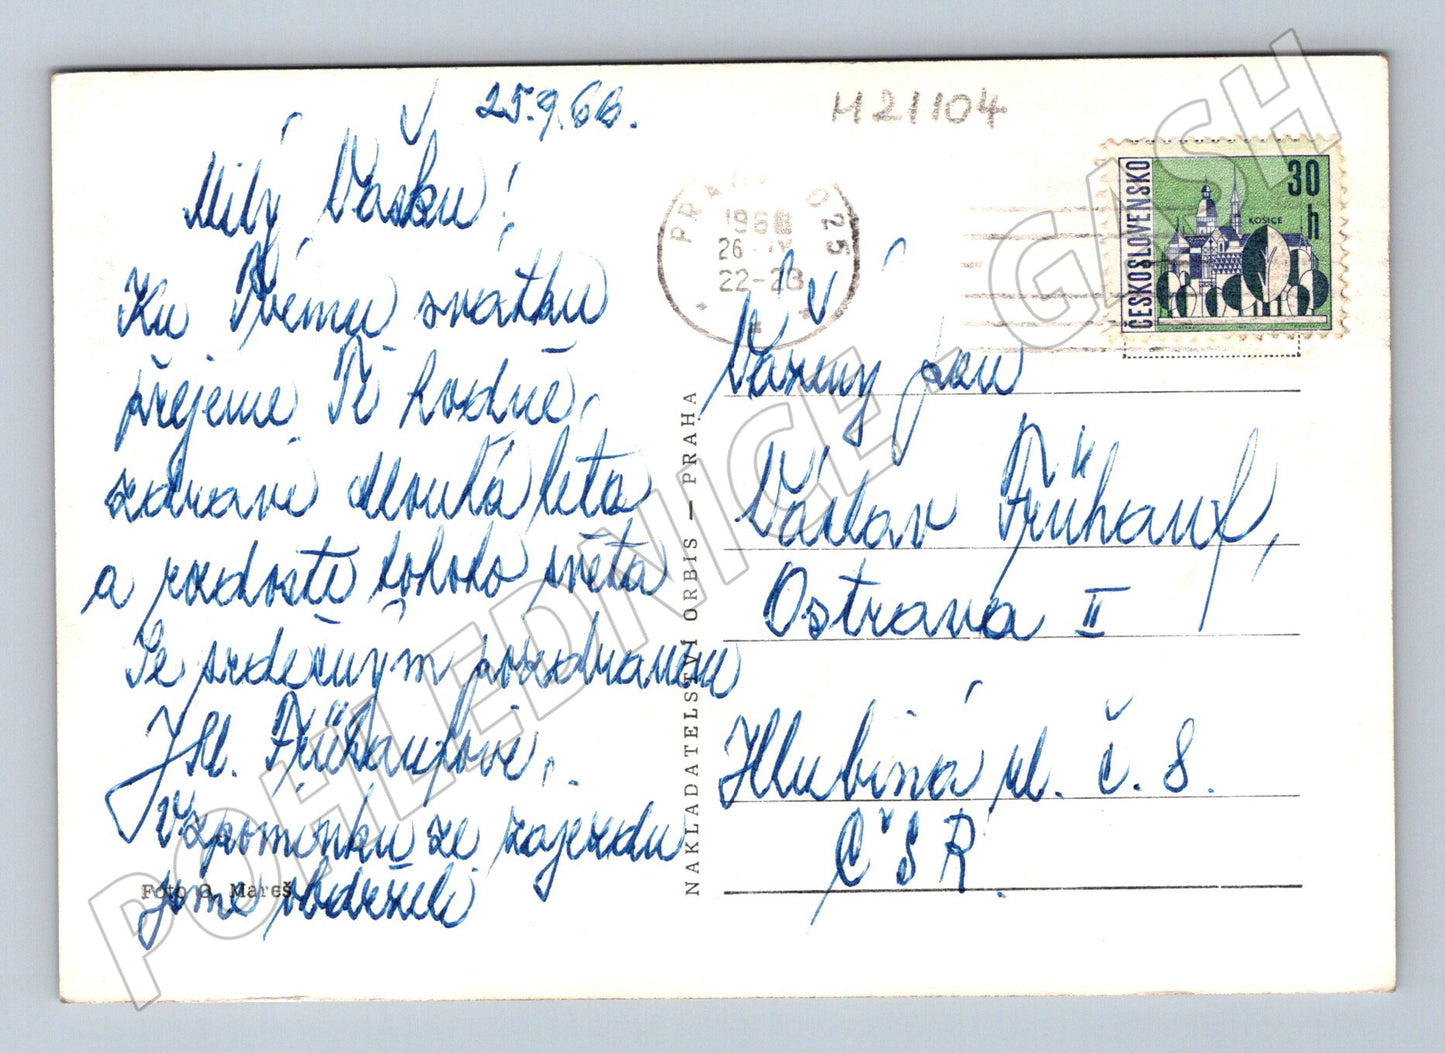 25.9.66.
Milý Vašku!
Ku Tvému svátku
přejeme Ti hodně,
zdraví dlouhá leta
a radosti tohoto světa
Se srdečným pozdravem
J M. Frühaufovi.
Vzpomínku ze zájezdu
jsme obdrželi
Foto J. Mareš
NAKLADATELSTVÍ ORBIS — PRAHA
M21104
PRAHA 025
1966
26. IX
22-23
ČESKOSLOVENSKO
30
h
KOŠICE
Vážený pan
Václav Frühauf,
Ostrava II
Hlubiná ul. č. 8.
ČSR.
POHLEDNICE.CASH